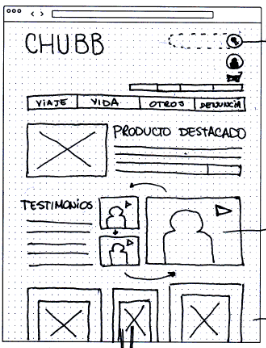 CHUBB
VIAJE VIDA OTROS DENUNCIA
PRODUCTO DESTACADO
TESTIMONIOS